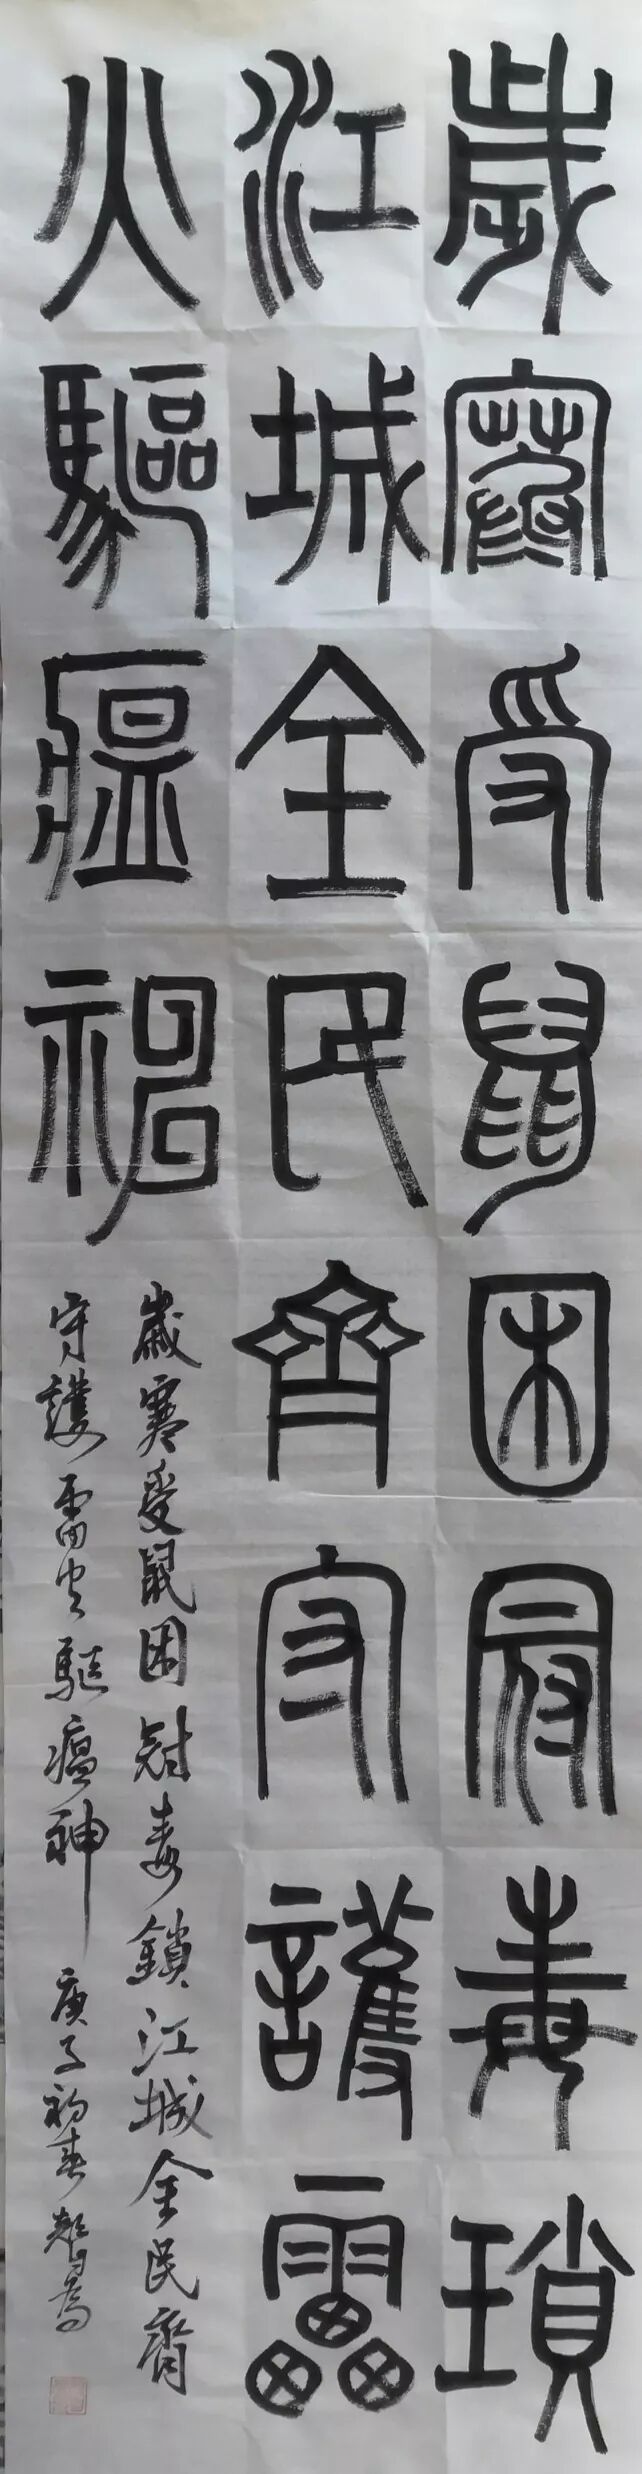 歲寒受鼠困冠毒瑣
江城全民齊守護靁
火驅瘟禍
歲寒受鼠困冠毒鎖江城全民齊
守護雷火驅瘟神 庚子初春